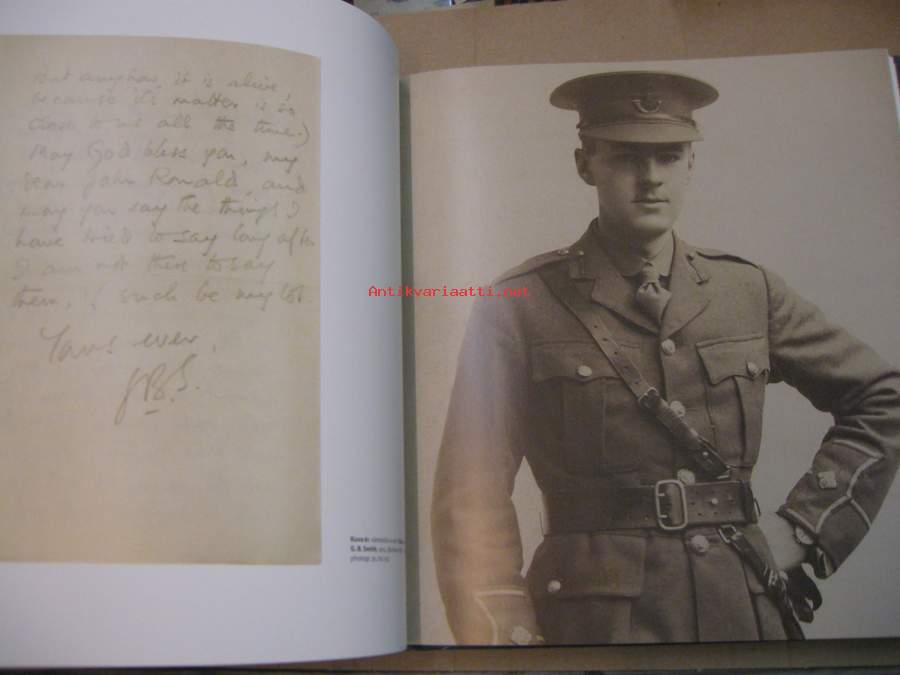 But anyhow, it is alive,
because it's matter is so
close to us all the time.)
May God bless you, my
dear John Ronald, and
may you say the things I
have tried to say long after
I am not there to say
them, if such be my lot.
Yours ever,
GBS.
Kuva 8:
G. B. Smith,
Antikvariaatti.net